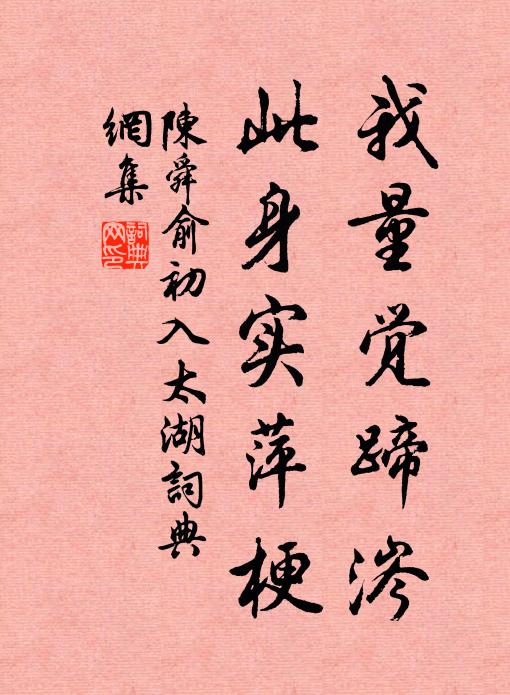 我量觉蹄涔
此身实萍梗
陳舜俞初入太湖詞典
網集
詞典
网印